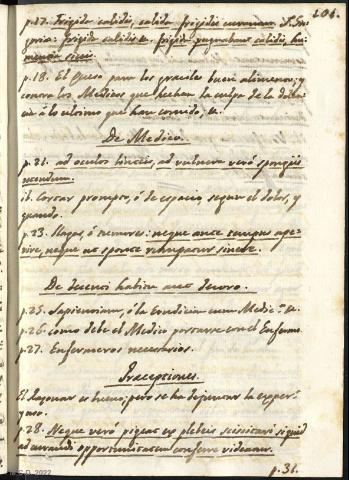 101.
p. 17. Frigida calidis, calida frigidis curantur. S. Gre
goria: frigida calidis &c. frigida pugnabant calidis, hu
mentia siccis.
p. 18. El Queso para los graciles buen alimento; y
contra los Medicos que hechan la culpa de la dolen
cia à lo ultimo que han comido, &c.
De Medico.
p. 21. ad oculos linteis, ad vulnera verò spongiis
utendum.
it. Cortar prompto, ó de espacio, segun el dolor, y
quando.
p. 23. llagas, ó tumores: neque ante tempus ape
rire, neque ut sponte rumpatur sinere.
De decenti habitu aut decoro.
p. 25. Sapientiam, ó la condicion cum Medic.ª &c.
p. 26. como debe el Medico portarse con el Enfermo
p. 27. Enfermeros necesarios.
Præceptiones.
El Razonar es bueno, pero se ha de juntar la experi
p. 28. Neque verò pigeat ex plebeis sciscitari si quid
ad curandi opportunitatem conferre videatur.
p. 31.